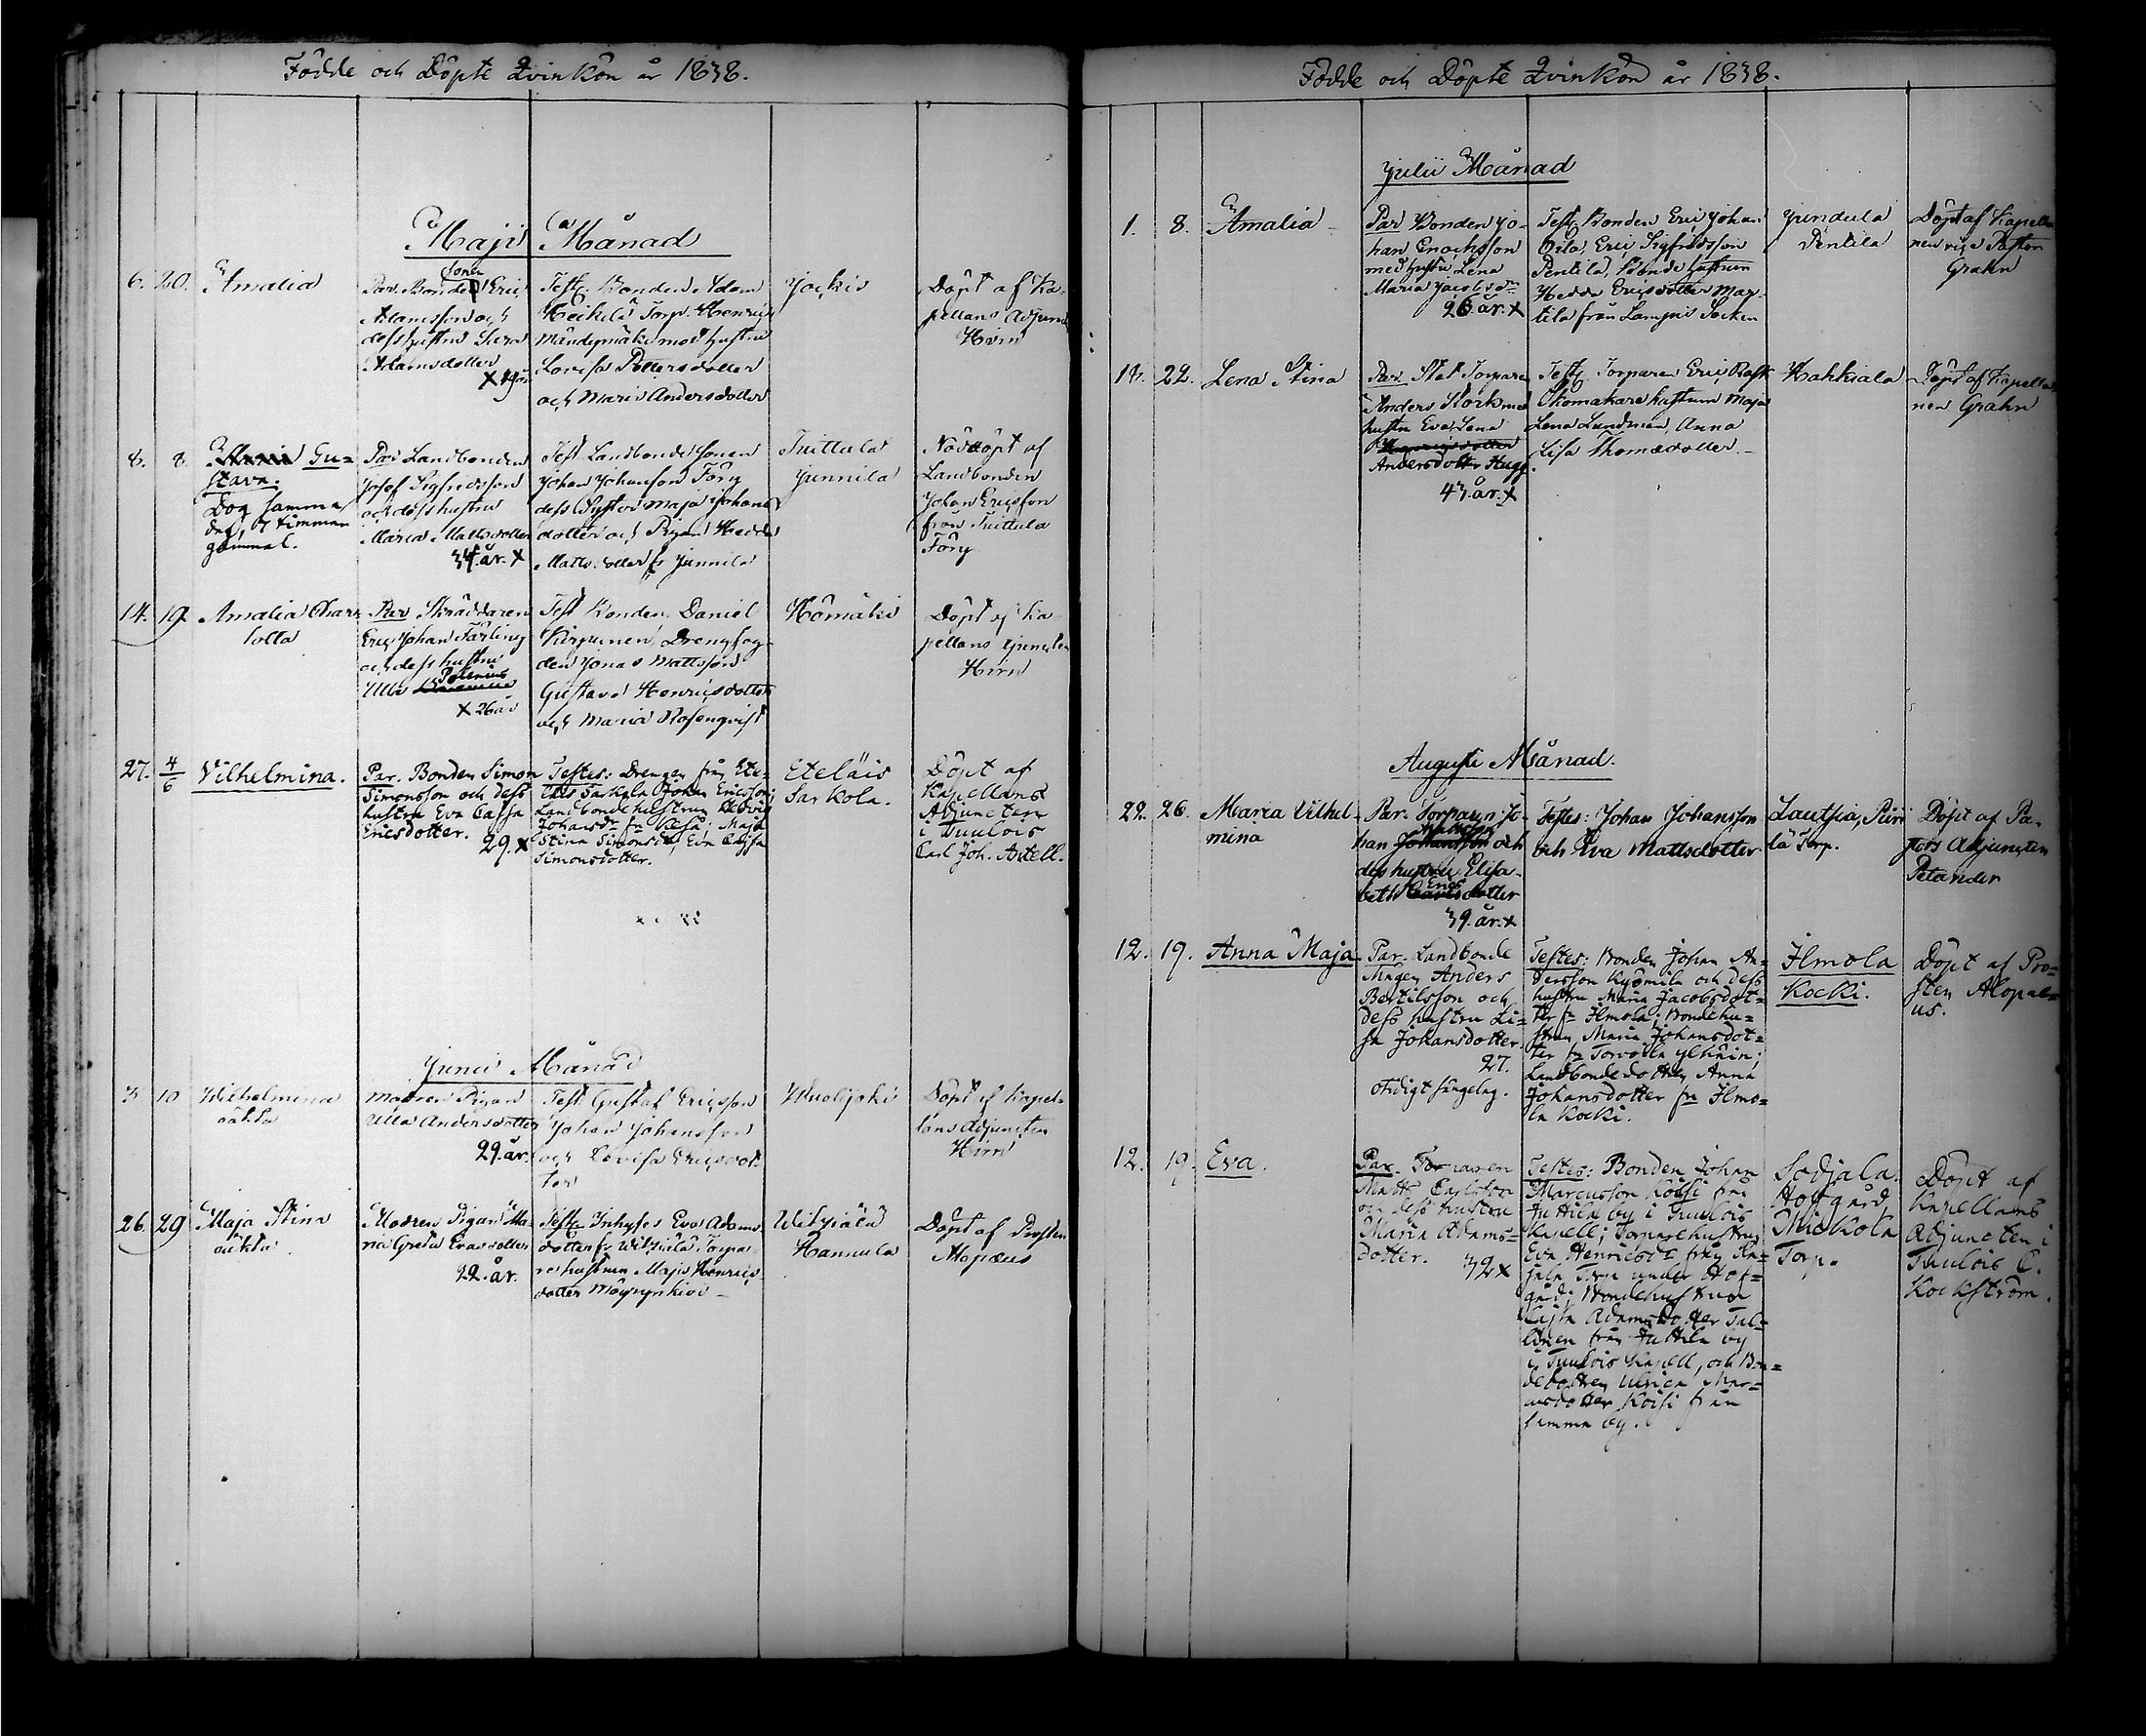 Födde och Döpte Qvinkön år 1838.
Maji Månad
6. 20. Amalia
Par. Bonde Sonen Eric
Adamsson och
dess hustru Sara
Adamsdotter
Test. Bonden Adam
Heikilä Torp. Henric
med hustru
Lovisa Pettersdotter
och Maria Andersdotter
Jockis
Döpt af Ka-
pellans Adjunct
Hirn
8. 8 Gu-
stava.
Dog samma
dag, 7 timmar
gammal.
Par Landbonden
Josef Sigfredsson
och dess hustru
Maria Mattsdotter
34. år. x
Test Landbondesonen
Johan Johansson Töry
dess Syster Maja Johans
dotter och Pigan Hedda
Mattsdotter fr Junnila
Tuittula
Junnila
Nöddöpt af
Landbonden
Johan Ericsson
från Tuittula
Töry
14. 19 Amalia Char-
lotta
Par Skräddaren
Eric Johan Färling
och dess hustru
Ulla Polenius
x 26 år
Test Bonden Daniel
Kirpunen, Drengfog-
den Jonas Mattsson
Gustava Henricsdotter
och Maria Rosenqvist
Hömäki
Döpt af Ka-
pellans Adjuncten
Hirn
27. 4/6 Vilhelmina.
Par. Bonden Simon
Simonsson och dess
hustru Eva Cajsa
Ericsdotter.
29. x
Testes: Drengen från Ete-
läis Sarkola Johan Ericsson;
Landbondehustrun Hedvig
Johansdr fr Maja
Stina Simonsdr, Eva Cajsa
Simonsdotter.
Eteläis
Sarkola.
Döpt af
Kapellans
Adjuncten
i Tuulois
Carl Joh. Axell.
Junii Månad
3 10 Wilhelmina
oäkta
Modren Pigan
Ulla Andersdotter
29. år.
Test Gustaf Ericsson
Johan Johansson
och Lovisa Ericsdot-
ter
Mualijoki
Döpt af Kapel-
lans Adjuncten
Hirn
26. 29 Maja Stina
oäkta
Modren Pigan Ma-
ria Greta Evasdotter
22. år.
Test Inhyses Eva Adams
dotter fr Witziälä Torpa-
re hustrun Maja Henrics
dotter
Witziälä
Hannula
Döpt af Prosten
Alopæus
Födde och Döpte Qvinkön år 1838.
Julii Månad
1. 8. Amalia
Par Bonden Jo-
han Enochsson
med hustru Lena
Maria Jacobsdr
26. år. x
Test. Bonden Eric Johan
Oila Eric Sigfredsson
Pentila, Bondehustrun
Hedda Ericsdotter Mar-
tila från Lampis Socken
Jundula
Pentila
Döpt af Kapella-
nen vice Pastor
Grahn
22. Lena Stina
Par. Stat Torparen
Anders Stork med
hustru Eva Lena
Andersdotter Hugg
43. år. x
Test. Torparen Eric Rask
Skomakare hustrun Maja
Lena Lundman, Anna
Lisa Thomasdotter.
Hahkiala
Döpt af Kapella-
nen Grahn
Augusti Månad.
22. 26. Maria Vilhel-
mina
Par. Torparen Jo-
han och
dess hustru Elisa-
beth Ericsdotter
39. år. x
Testes: Johan Johansson
och Eva Mattsdotter
Lautsia, Piri-
lä Torp.
Döpt af Pa-
stors Adjuncten
Petander
12. 19. Anna Maja
Par. Landbonde
Mågen Anders
Bertilsson och
dess hustru Li-
sa Johansdotter
27.
otidigt sängelag.
Testes: Bonden Johan An-
dersson Kyömilä och dess
hustru Maria Jacobsdot-
ter fr Ilmola; Bondehu-
strun Maria Johansdot-
ter fr Torvoila
Landbondedottren Anna
Johansdotter fr Ilmo-
la Kocki.
Ilmola
Kocki.
Döpt af Pro-
sten Alopæ-
us.
12. 19. Eva.
Par. Torparen
Matts Carlsson
och dess hustru
Maria Adams-
dotter.
32 x
Testes: Bonden Johan
Marcusson Köisi från
Juttila by i Tuulois
Kapell; Torparehustrun
Eva Henricsdr från Ha-
jala Torp under Hof-
gård; Bondehustrun
Cajsa Adamsdotter Tul-
lonen från Juttila by
i Tuulois Kapell, och Bon-
dedottren Ulrica Mar-
cusdotter Köisi från
samma by.
Sodjala
Hofgård
Mickola
Torp.
Döpt af
Kapellans
Adjuncten i
Tuulois C.
Kockström.